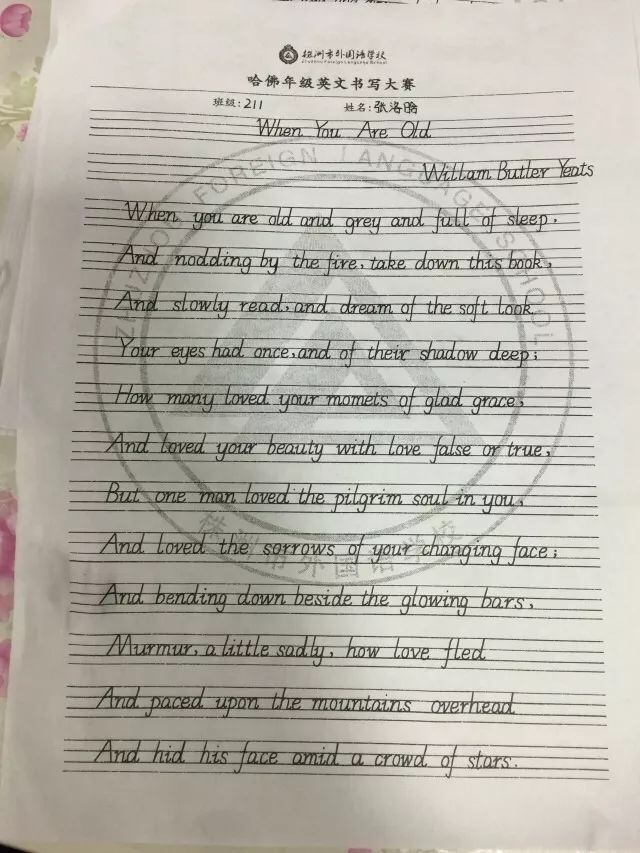 株洲市外国语学校
Zhuzhou Foreign Language School
哈佛年级英文书写大赛
班级：211 姓名：张洛晗
When You Are Old
Willam Butler Yeats
When you are old and grey and full of sleep,
And nodding by the fire, take down this book,
And slowly read, and dream of the soft look
Your eyes had once, and of their shadow deep;
How many loved your momets of glad grace,
And loved your beauty with love false or true,
But one man loved the pilgrim soul in you,
And loved the sorrows of your changing face;
And bending down beside the glowing bars,
Murmur, a little sadly, how love fled
And paced upon the mountains overhead
And hid his face amid a crowd of stars.
ZHUZHOU FOREIGN LANGUAGE SCHOOL
株洲市外国语学校